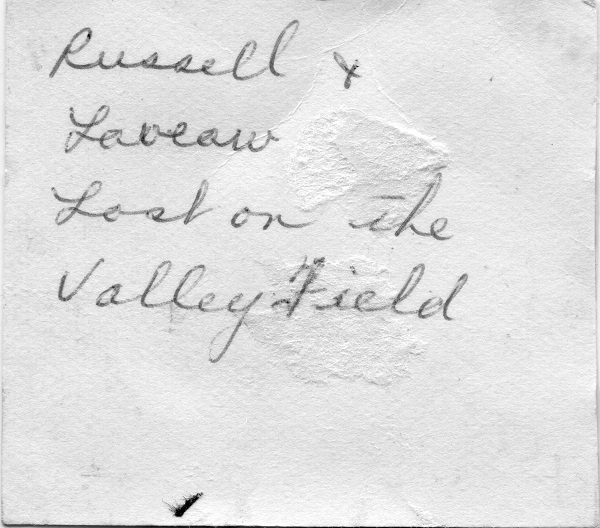 Russell &
Laveaw
Lost on the
Valley Field